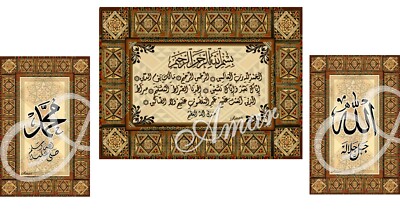 بسم الله الرحمن الرحيم
الحمد لله رب العالمين الرحمن الرحيم مالك يوم الدين
إياك نعبد وإياك نستعين اهدنا الصراط المستقيم صراط
الذين أنعمت عليهم غير المغضوب عليهم ولا الضالين
صدق الله العظيم
الله
جل جلاله
محمد
صلى الله عليه وسلم